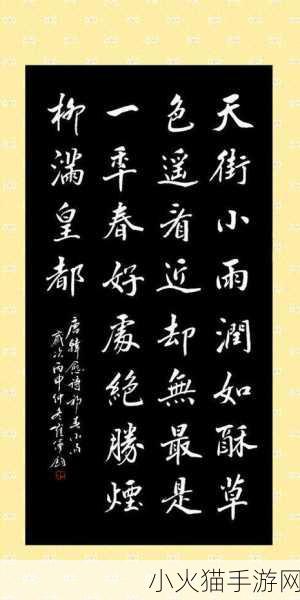 天街小雨潤如酥草
色遥看近却無最是
一秊春好處絕勝煙
柳滿皇都
唐韓愈詩初春小雨
歲次丙申仲冬
小火猫手游网